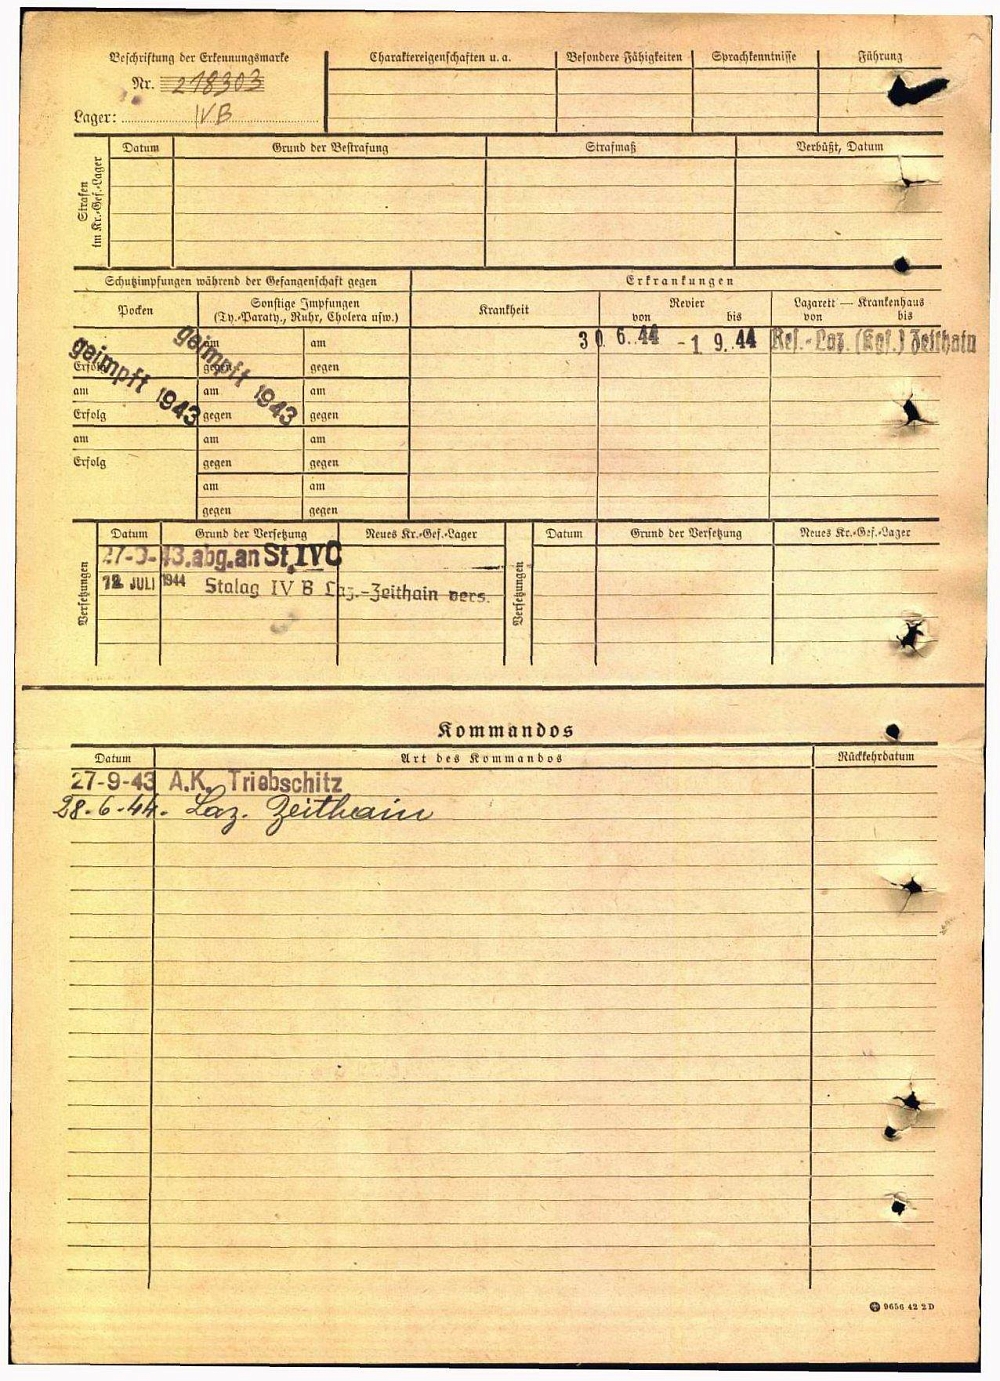 Beschriftung der Erkennungsmarke
Nr. 218303
Lager: IV B
Charaktereigenschaften u. a.
Besondere Fähigkeiten
Sprachkenntnisse
Führung
Strafen im Kr.-Gef.-Lager
Datum
Grund der Bestrafung
Strafmaß
Verbüßt, Datum
Schutzimpfungen während der Gefangenschaft gegen
Erkrankungen
Pocken
Sonstige Impfungen
(Ty.-Paraty., Ruhr, Cholera usw.)
Krankheit
Revier
von bis
Lazarett — Krankenhaus
von bis
geimpft 1943
geimpft 1943
30 6. 44 - 1 9. 44 Res.-Laz. (Kgf.) Zeithain
am am
Erfolg gegen gegen
am am am
Erfolg gegen gegen
am am am
Erfolg gegen gegen
am am
gegen gegen
Versetzungen
Datum Grund der Versetzung Neues Kr.-Gef.-Lager
27-9-43. abg. an St. IV C
12 JULI 1944 Stalag IV B Laz.-Zeithain vers.
Versetzungen
Datum Grund der Versetzung Neues Kr.-Gef.-Lager
Kommandos
Datum Art des Kommandos Rückkehrdatum
27-9-43 A.K. Triebschitz
28-6-44. Laz. Zeithain
9656 42 2 D